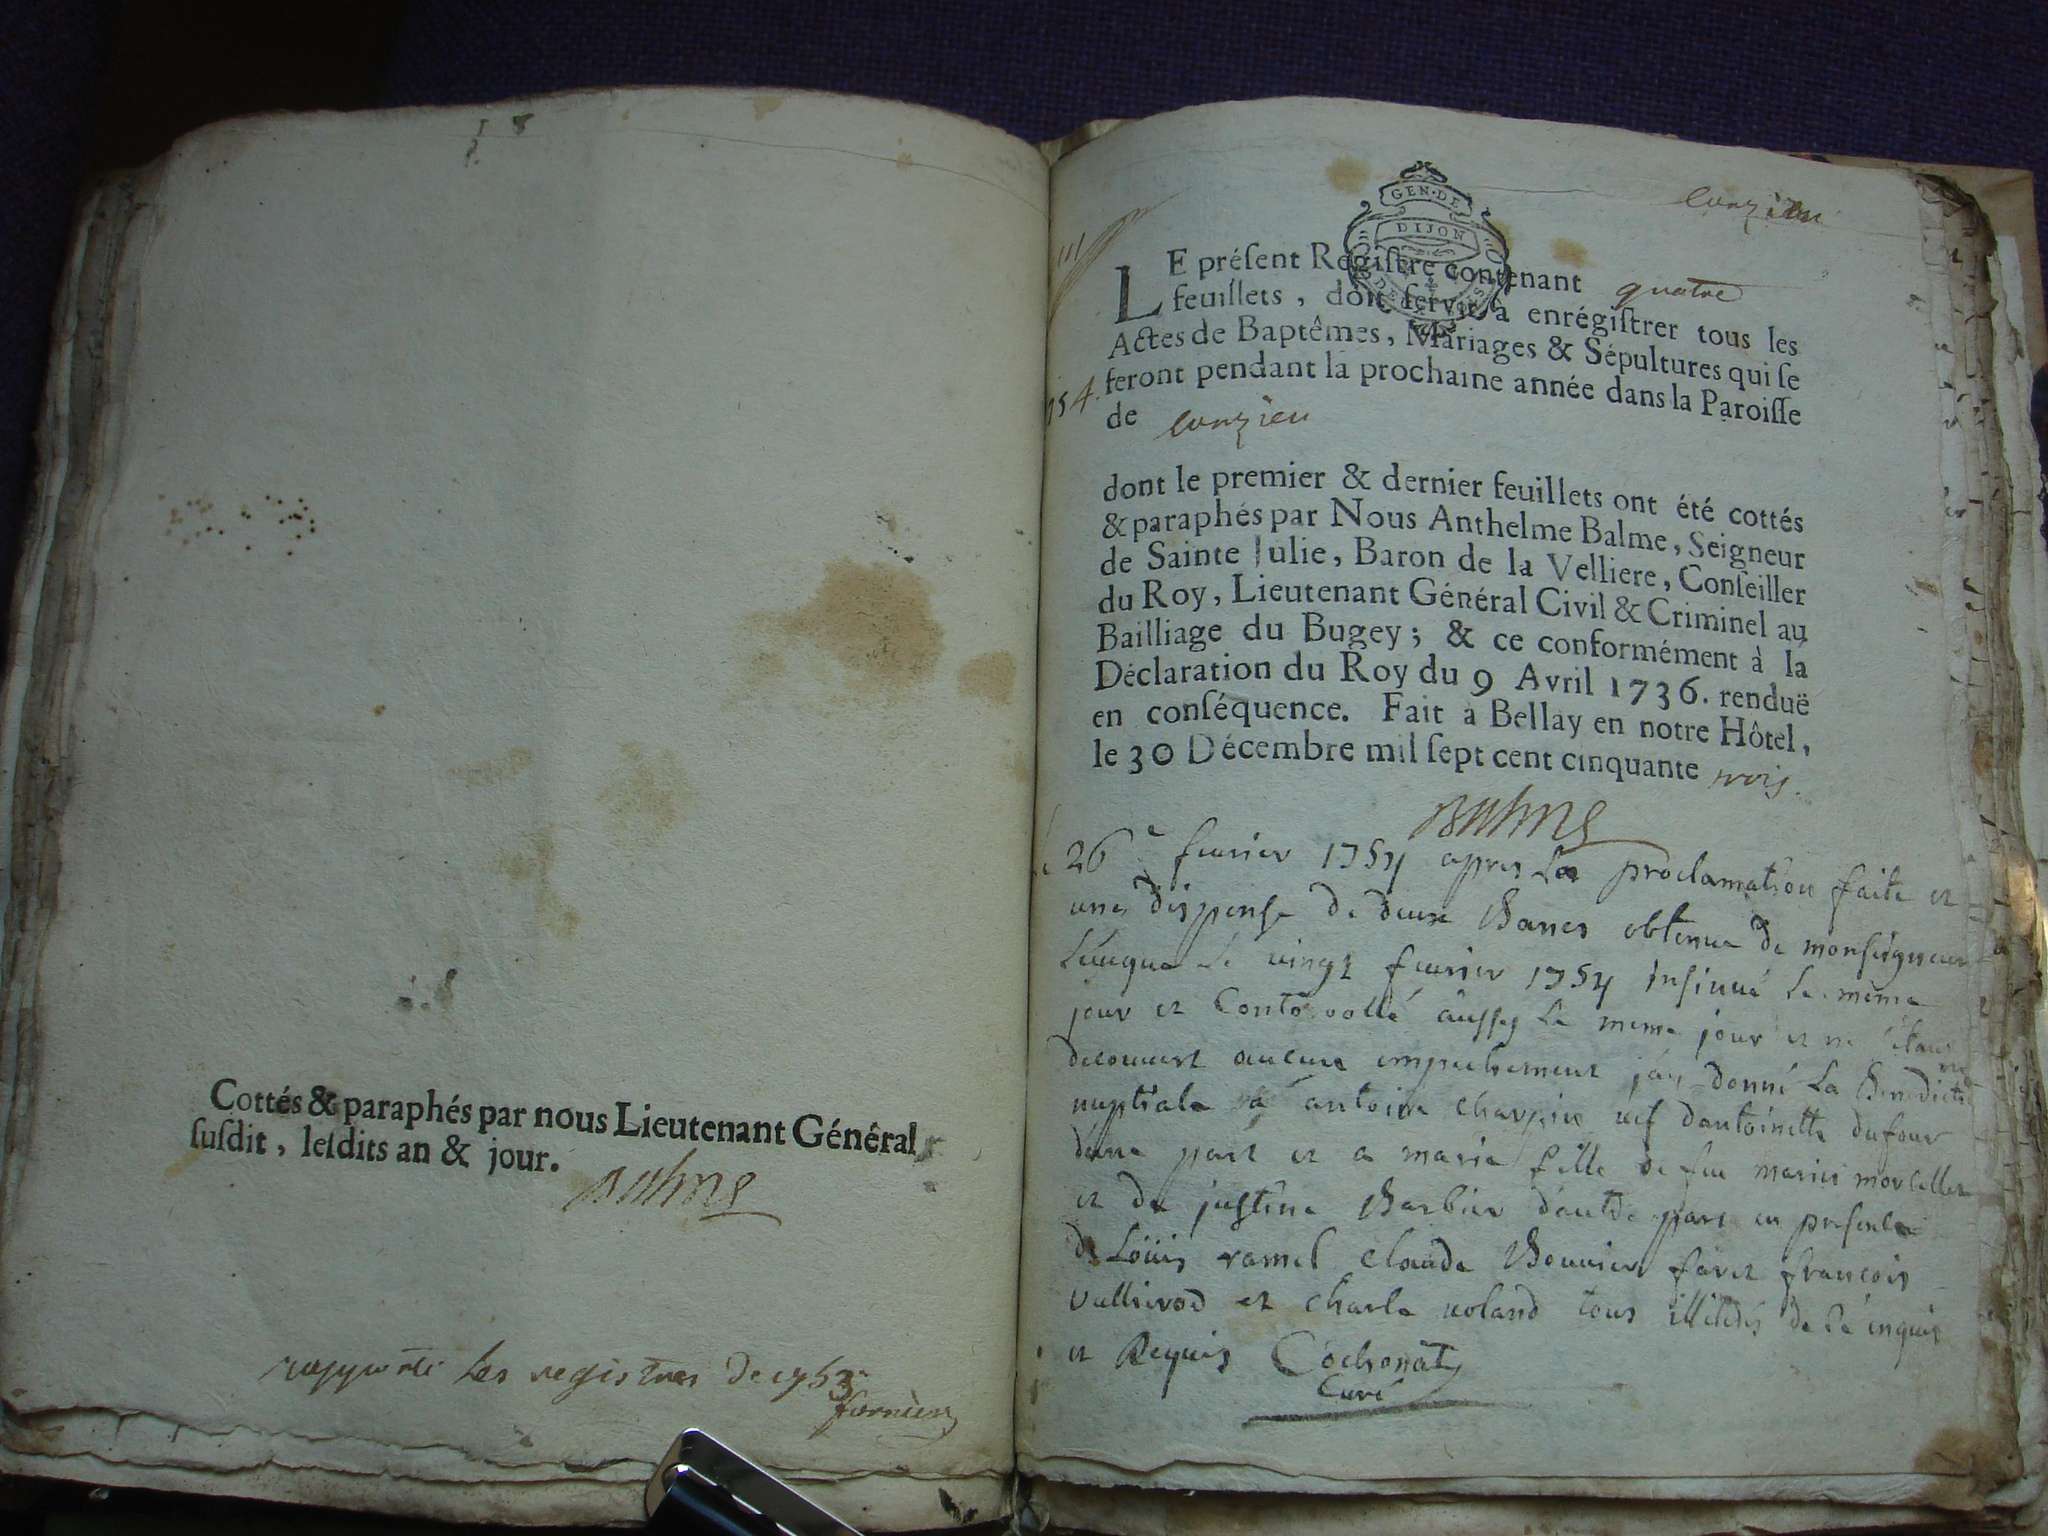 Cottés & paraphés par nous Lieutenant Général
susdit, lesdits an & jour.
Balme
les registres de 1753
GEN·DE
DIJON
Conzieu
LE présent Registre contenant quatre
feuillets, doit servir à enrégistrer tous les
Actes de Baptêmes, Mariages & Sépultures qui se
feront pendant la prochaine année dans la Paroisse
de Conzieu
dont le premier & dernier feuillets ont été cottés
& paraphés par Nous Anthelme Balme, Seigneur
de Sainte Julie, Baron de la Velliere, Conseiller
du Roy, Lieutenant Général Civil & Criminel au
Bailliage du Bugey; & ce conformément à la
Déclaration du Roy du 9 Avril 1736. renduë
en conséquence. Fait à Bellay en notre Hôtel,
le 30 Décembre mil sept cent cinquante trois.
Balme
26e fevrier 1754 apres la proclamation faite et
une dispense de deux Bancs obtenue de monseigneur
L'eveque le vingt fevrier 1754 insinué le meme
jour et Controollé aussy le meme jour et ne s'etant
decouvert aucun empechement j'ay donné La Benedict
nuptiale a antoine charpin vef d'antoinette dufour
d'une part et a marie fille de feu marin morcellet
et de justine Barbier d'autre part en presence
de Loüis ramel Claude Bouvier favet françois
et charle voland tous illiterés de ce enquis
et Requis Cochonat
Curé